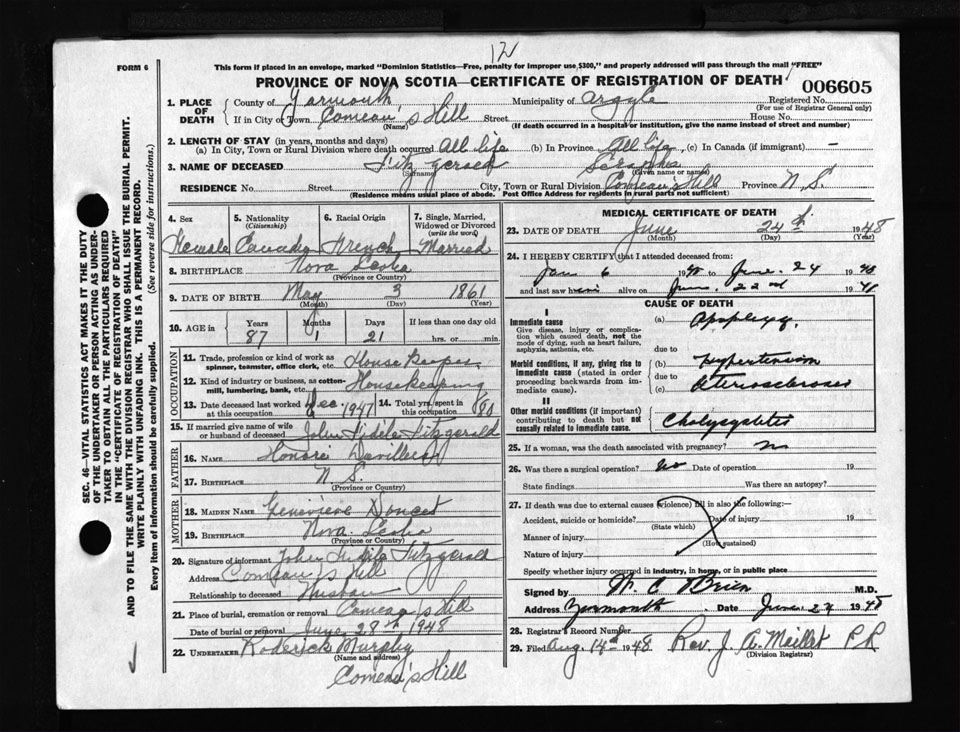 12
FORM 6
This form if placed in an envelope, marked "Dominion Statistics—Free, penalty for improper use,$300," and properly addressed will pass through the mail "FREE"
PROVINCE OF NOVA SCOTIA—CERTIFICATE OF REGISTRATION OF DEATH
006605
Registered No.
(For use of Registrar General only)
1. PLACE OF DEATH
County of Yarmouth Municipality of Argyle
If in City or Town Comeau's Hill Street House No.
(Name) (If death occurred in a hospital or institution, give the name instead of street and number)
2. LENGTH OF STAY (in years, months and days)
(a) In City, Town or Rural Division where death occurred All life (b) In Province All life (c) In Canada (if immigrant) —
3. NAME OF DECEASED Fitzgerald
(Surname) (Given name or names)
RESIDENCE No. Street City, Town or Rural Division Comeau's Hill Province N. S.
(Residence means usual place of abode. Post Office Address for residents in rural parts not sufficient)
4. Sex
Female
5. Nationality
(Citizenship)
Canada
6. Racial Origin
French
7. Single, Married, Widowed or Divorced
(write the word)
Married
8. BIRTHPLACE Nova Scotia
(Province or Country)
9. DATE OF BIRTH May 3 1861
(Month) (Day) (Year)
10. AGE in Years Months Days If less than one day
87 1 21 hrs. or min.
OCCUPATION
11. Trade, profession or kind of work as spinner, teamster, office clerk, etc. House Keeper
12. Kind of industry or business, as cotton-mill, lumbering, bank, etc. Housekeeping
13. Date deceased last worked at this occupation Dec. 1947
14. Total yrs. spent in this occupation 80
15. If married give name of wife or husband of deceased John Fidele Fitzgerald
FATHER
16. Name Honoré
17. BIRTHPLACE N. S.
(Province or Country)
MOTHER
18. MAIDEN NAME Genevieve Doucet
19. BIRTHPLACE Nova Scotia
(Province or Country)
20. Signature of informant John Fidele Fitzgerald
Address Comeau's Hill
Relationship to deceased Husban
21. Place of burial, cremation or removal Comeau's Hill
Date of burial or removal June 28th 1948
22. UNDERTAKER Roderick Murphy
(Name and address)
Comeau's Hill
MEDICAL CERTIFICATE OF DEATH
23. DATE OF DEATH June 24th 1948
(Month) (Day) (Year)
24. I HEREBY CERTIFY that I attended deceased from:
Jan 6 1948 to June 24 1948
and last saw h alive on June 22nd 19
CAUSE OF DEATH
I
Immediate cause
Give disease, injury or complication which caused death, not the mode of dying, such as heart failure, asphyxia, asthenia, etc.
(a) Apoplexy.
due to
Morbid conditions, if any, giving rise to immediate cause (stated in order proceeding backwards from immediate cause).
(b) Hypertension
due to
(c) Arteriosclerosis
II
Other morbid conditions (if important) contributing to death but not causally related to immediate cause.
Cholycystitis
25. If a woman, was the death associated with pregnancy? no
26. Was there a surgical operation? no Date of operation 19
State findings Was there an autopsy?
27. If death was due to external causes (violence) fill in also the following:
Accident, suicide or homicide? Date of injury 19
(State which)
Manner of injury
(How sustained)
Nature of injury
Specify whether injury occurred in industry, in home, or in public place
Signed by W. C. O'Brien M.D.
Address Yarmouth Date June 24 1948
28. Registrar's Record Number
29. Filed Aug. 14 1948 Rev. J. A. Maillet P.R.
(Division Registrar)
SEC. 46—VITAL STATISTICS ACT MAKES IT THE DUTY
OF THE UNDERTAKER OR PERSON ACTING AS UNDER-
TAKER TO OBTAIN ALL THE PARTICULARS REQUIRED
IN THE "CERTIFICATE OF REGISTRATION OF DEATH"
AND TO FILE THE SAME WITH THE DIVISION REGISTRAR WHO SHALL ISSUE THE BURIAL PERMIT.
WRITE PLAINLY WITH UNFADING INK. THIS IS A PERMANENT RECORD.
Every item of information should be carefully supplied. (See reverse side for instructions.)